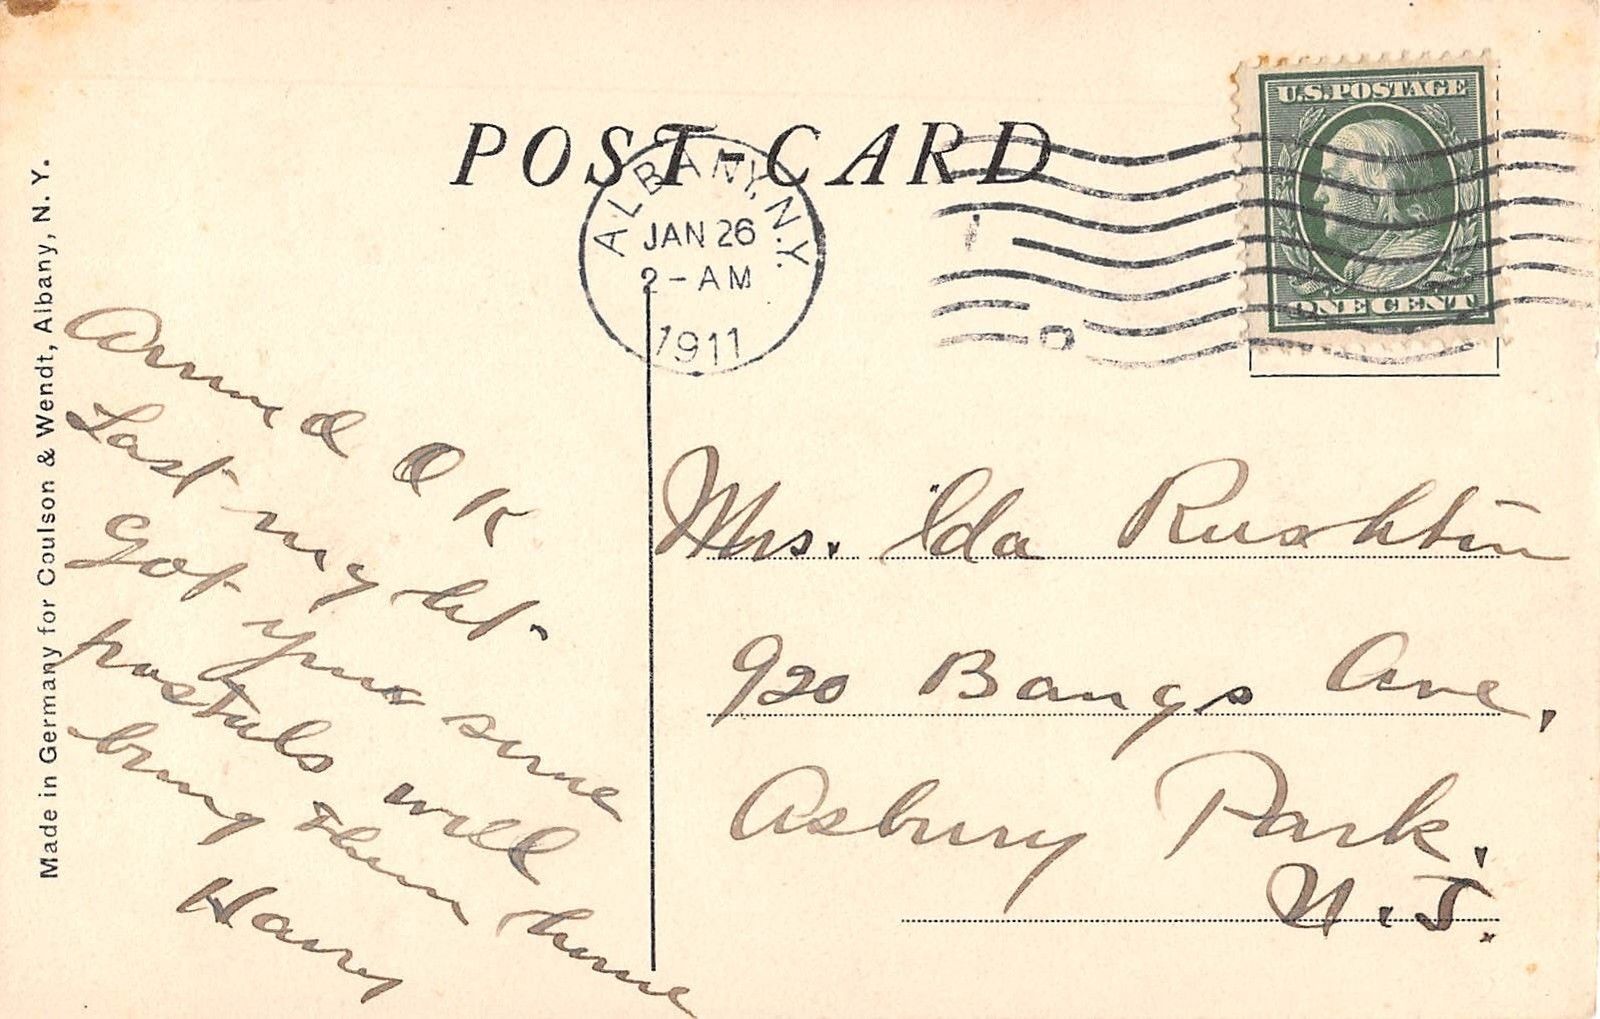 POST-CARD
ALBANY, N.Y.
JAN 26
2-AM
1911
U.S. POSTAGE
ONE CENT
Made in Germany for Coulson & Wendt, Albany, N. Y.
Arrived O K
Last night
Got you some
postals will
bring them home
Harry
Mrs. Ida Rushton
920 Bangs Ave,
Asbury Park,
N.J.